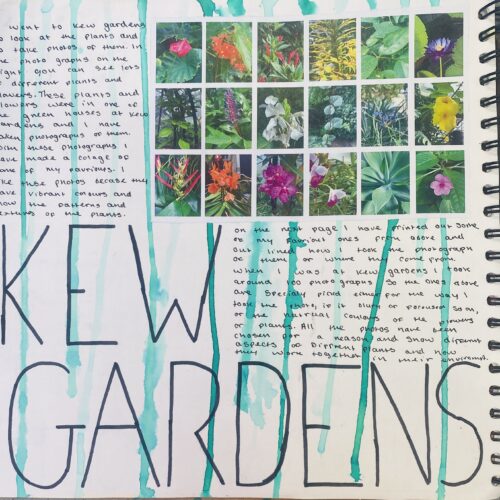 I went to Kew gardens
to look at the plants and
to take photos of them. In
the photo graphs on the
right you can see lots
of different plants and
flowers. These plants and
flowers were in one of
the green houses at Kew
gardens and I have
taken photographs of them.
Using these photographs I
have made a collage of
some of my favorites. I
like these photos because they
have vibrant colours and
show the patterns and
textures of the plants.
on the next page I have printed out some
of my favorious ones from above and
out lined how I took the photograph
of them or where they come from
when I was at Kew gardens I took
around 100 photographs so the ones above
are specialy picked either for the way I
took the photo, if it blurs or focuses so on,
or the natural colours of the flowers
or plants. All the photos have been
chosen for a reason and show different
aspects of different plants and how
they work together in their enviroment.
KEW
GARDENS